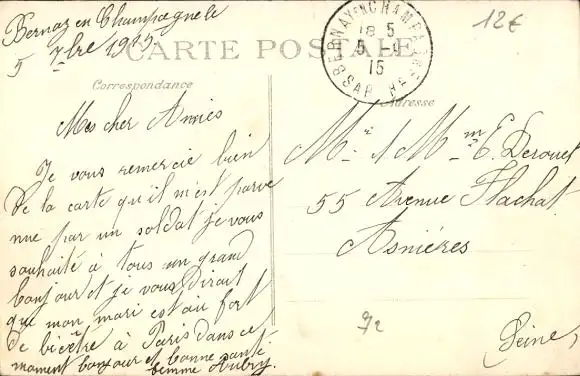 Bernay en Champagne le
5 7bre 1915
12€
CARTE POSTALE
BERNAY EN CHAMPAGNE
18 5
5-9
15
SARTHE
Correspondance
Adresse
Mes cher Amies
Je vous remercie bien
De la carte qu'il m'est parve
nue par un soldat je vous
souhaité à tous un grand
bonjour et je vous Dirait
que mon mari est au fort
de bicêtre à Paris dans ce
moment bonjour et bonne santé
femme Aubry
Mr et Mme E. Derouet
55 Avenue Flachat
Asnières
72
(Seine)